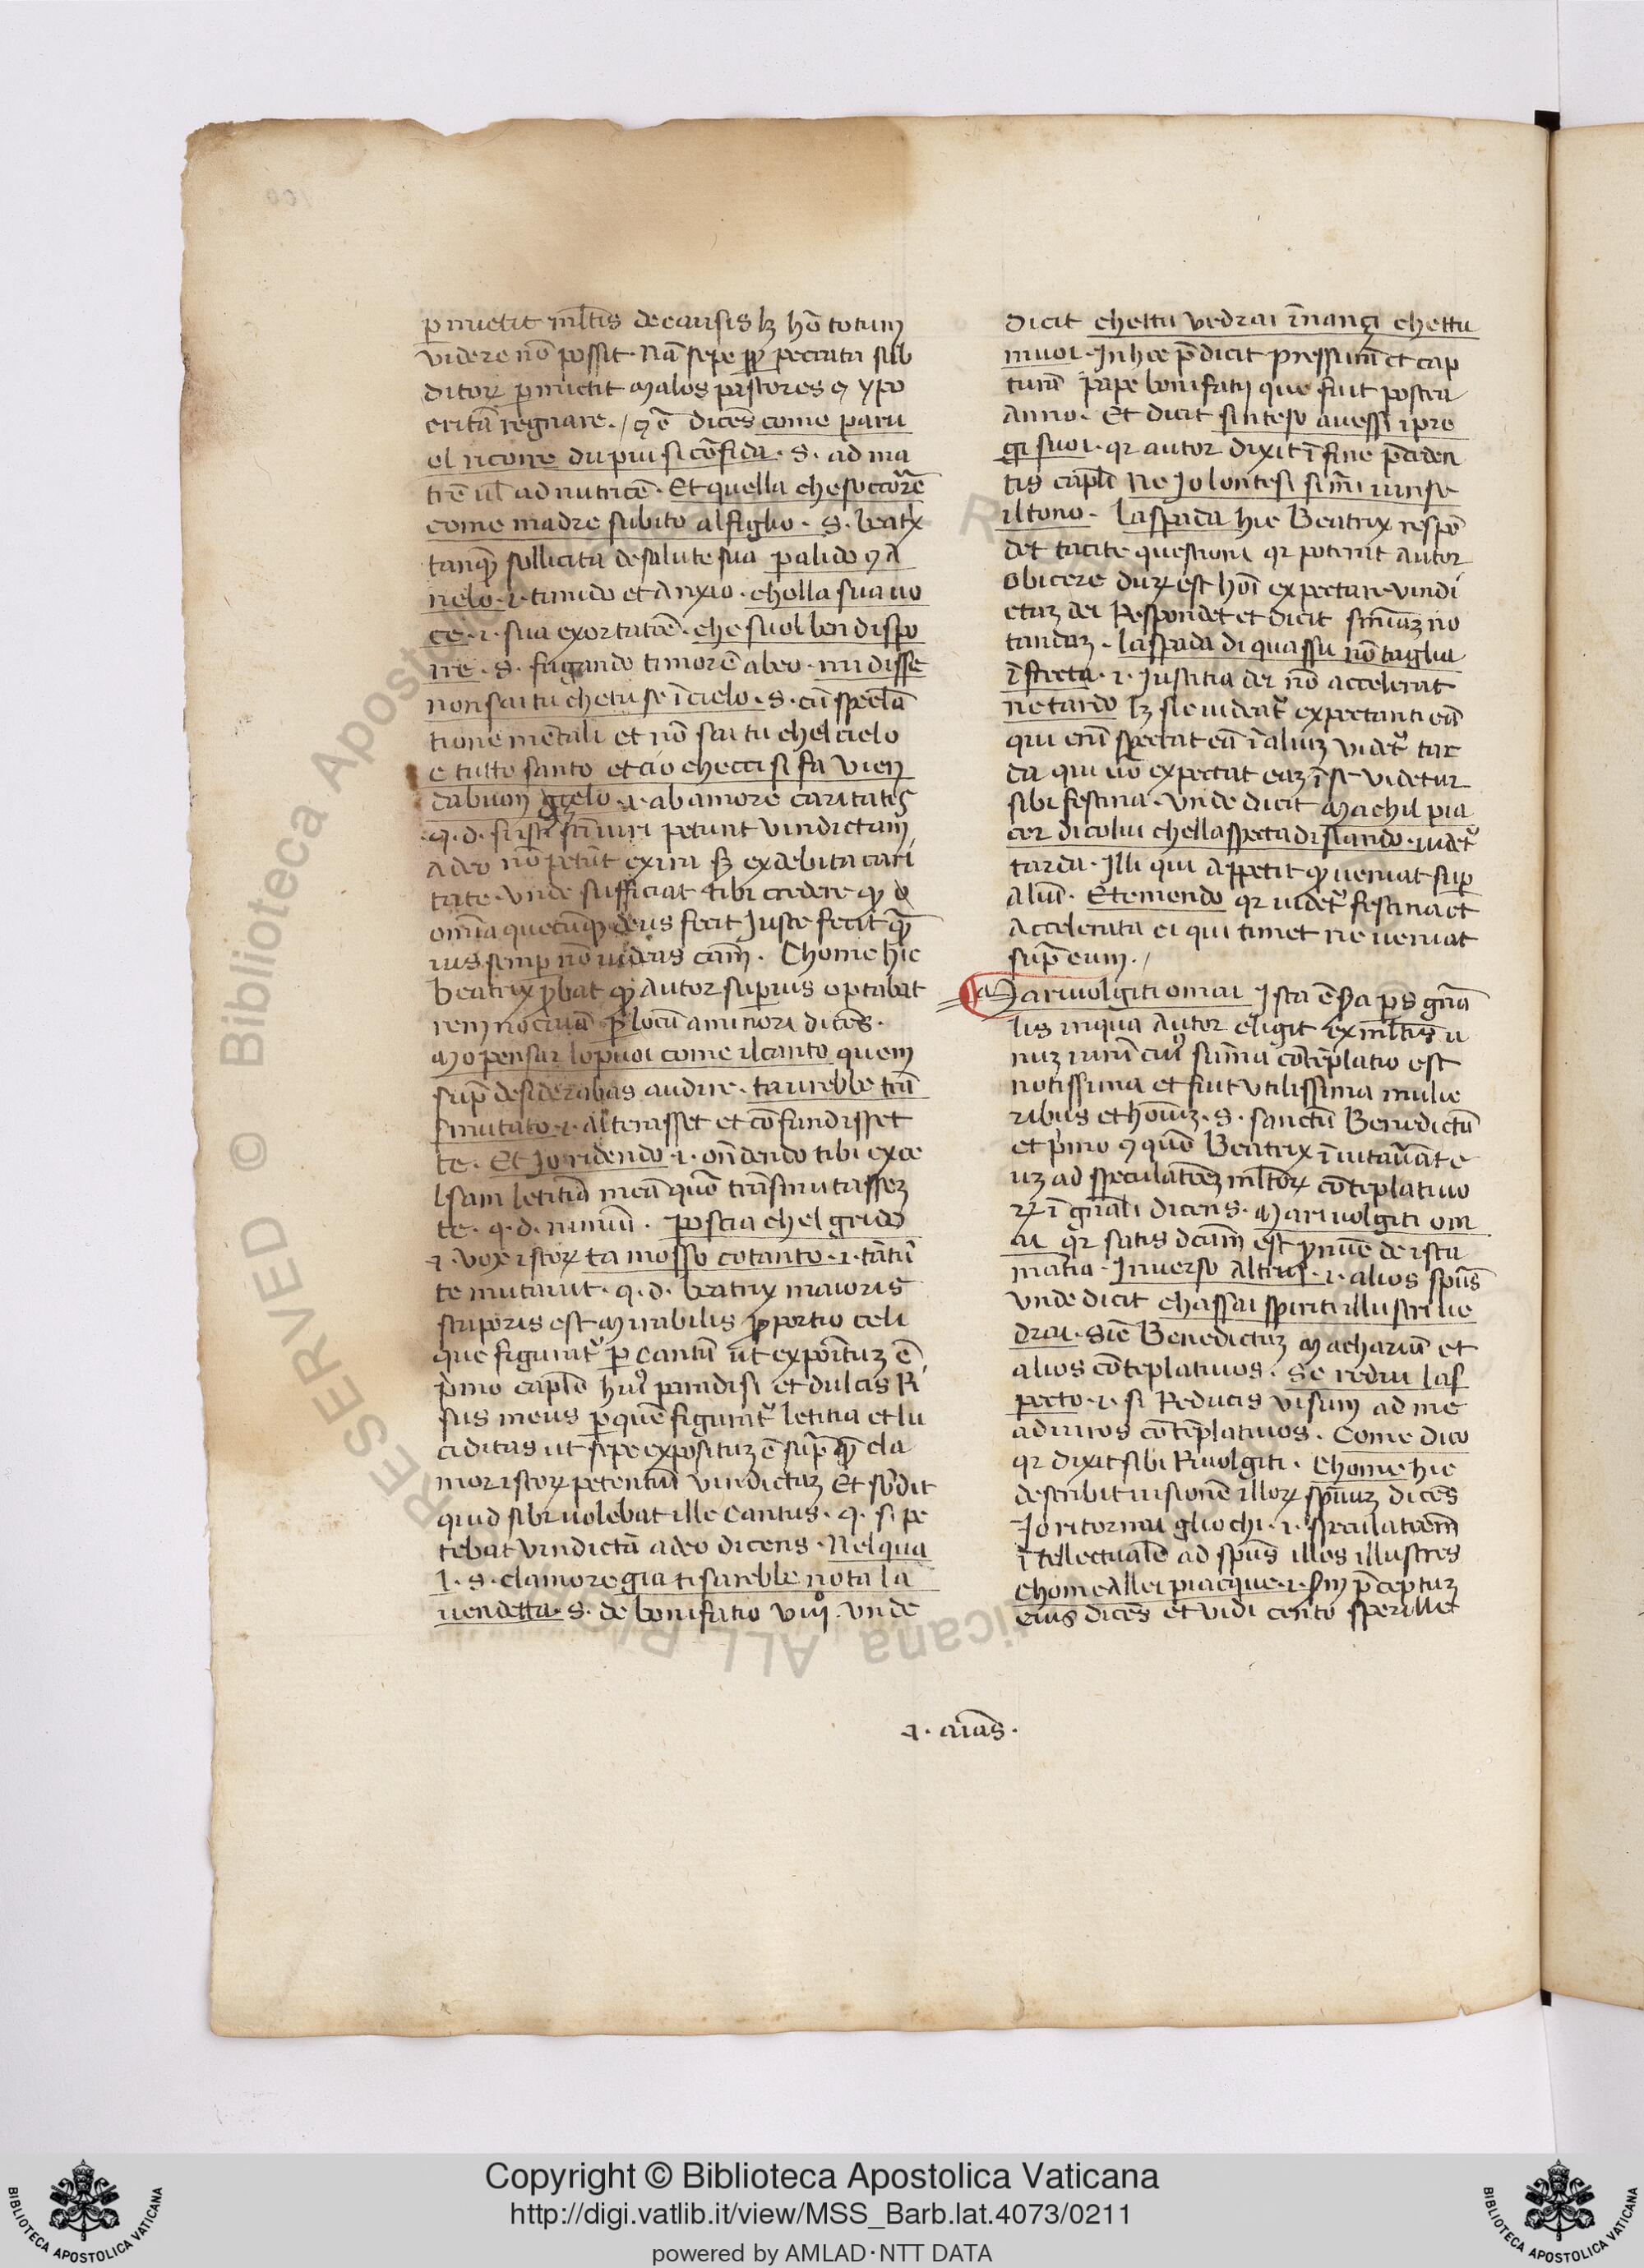 pmictit ml̄tis de causis lꝫ hō totum
videre nō possit. Nā sepe pp̄ peccata sub
ditoꝝ pmictit malos pastores ꝯ ypo
critā regnare. / ꝯ ē dicēs come paru
ol ricorre du piu si cōfida. S. ad ma
trē ul̄ ad nutricē. Et quella che soccorrē
come madre subito al figlio. S. beatx
tanqꝫ sollicita de salute sua palido ꝯ A
nelo. ı. timido et anxio. cholla sua uo
ce. ı. sua exortatōe. che suol ben dispo
rre. S. fugando timorē ab eo. mi disse
non sai tu che tu se ī cielo. S. cū specl̄a
tione mētali et nō sai tu chel cielo
e tutto santo et cio checci si fa vien
da buon çelo. ı. ab amore caritatis
q. d. si isti sc̄i viri petunt vindictam
a deo nō petūt ex ira sꝫ ex debita cari
tate. vnde sufficiat tibi credere qꝫ
omīa quecūqꝫ deus fecit Juste fecit quā
uis semp nō uideas cam̄. Chome hic
Beatrix pbat qꝫ autor supius optabat
rem nociuā p locū a minori dicēs.
Mo pensar lo puoi come il canto quem
sup̄ desiderabas audire. taurebbe trā
smutato. ı. alterasset et cōfundisset
te. Et Jo ridendo. ı. on̄dendo tibi exce
lsam letitiā meā quō trāsmutassꝫ
te. q. d. nimiū. poscia chel grido
ı. vox istoꝝ ta mosso cotanto. ı. tātū
te mutauit. q. d. beatrix maioris
stuporis est mirabilis pportio celi
que figurat᷑ p cantū ut expoītuꝫ ē
pmo capl̄o huiꝰ paradisi et dulcis Ri
sus meus p quē figurat᷑ letitia et lu
ciditas ut sepe exposituꝫ ē sup̄ qꝫ cla
mor istoꝝ petentiū vindictaꝫ Et sb̄dit
quid sibi uolebat ille cantus. q. si pe
tebat vindictā a deo dicens. Nel qua
l. S. clamore gia ti sarebbe nota la
uendetta. S. de bonifatio viij. vnde
dicit chettu vedrai īnançi chettu
muoi. In hoc p̄dicit pressurā et cap
turā pape bonifatij que fuit postea
anno. Et dicit sinteso auessi i pre
gi suoi. qr autor dixit ī fine p̄cedēn
tis capl̄i Ne Jo lontesi si mi uinse
il tono. La spada hic Beatrix respō
det tacite questioni qr poterit autor
obicere duꝝ est hōi expectare vindi
ctaꝫ dei Respondet et dicit snīaꝫ no
tandaꝫ. La spada di quassu nō taglia
ī frecta. ı. Justitia dei nō accelerat
ne tardo lꝫ sic uideat᷑ expectanti eā
qui enī spectat eā ī aliuꝫ videt᷑ tar
da qui uō expectat eaꝫ ī se videtur
sibi festina. vnde dicit Ma chil pia
cer di colui chella specta disiando. uidet᷑
tarda. Illi qui appetit qꝫ ueniat sup
aliū. E temendo qr uidet᷑ festina et
accelerata ei qui timet ne ueniat
sup̄ eum. /
Ma riuolgiti omai Ista ē 2a ps gn̄a
lis in qua autor eligit ex ml̄tis u
nuꝫ uirū cuiꝰ sūma cōtēplatio est
notissima et fuit vtilissima mulie
ribus et hoīuꝫ. S. sanctū Benedictū
et pmo ꝯ quō Beatrix īuitauāt e
uꝫ ad speculatōeꝫ ml̄toꝝ cōteplatiuo
ꝝ ī gn̄ali dicens. Ma riuolgiti om
ai qr satis dc̄um est pnūc de ista
mat̄ia. Inuerso altrui. ı. alios spūs
Vnde dicit chassai spiriti illustri ue
drai. Sic Benedictuꝫ Machariū et
alios cōteplatiuos. Se redui las
pecto. ı. si Reducis visum ad me
ad uiros cōteplatiuos. Come dico
qr dixit sibi Riuolgiti. Chome hic
describit uisionē illoꝝ spūuꝫ dicēs
Jo ritornai gliochi. ı. speculatōem
ītellectualē ad spūs illos illustres
chome allei piacque. ı. scd̄m p̄ceptuꝫ
eius dicēs et vidi cento sperille
ı. aīas.
Copyright © Biblioteca Apostolica Vaticana
http://digi.vatlib.it/view/MSS_Barb.lat.4073/0211
powered by AMLAD·NTT DATA
BIBLIOTECA APOSTOLICA VATICANA
BIBLIOTECA APOSTOLICA VATICANA